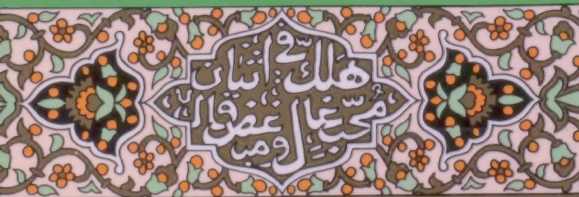 هلك فی اثنان
محبّ غال ومبغض قال